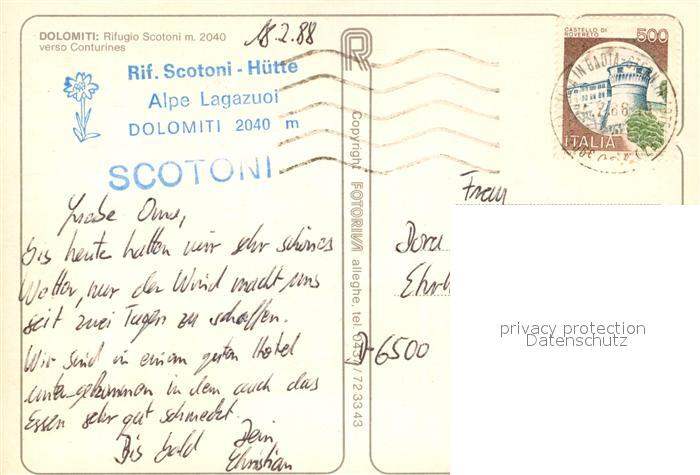 DOLOMITI: Rifugio Scotoni m. 2040
verso Conturines
18.2.88
Rif. Scotoni - Hütte
Alpe Lagazuoi
DOLOMITI 2040 m
SCOTONI
Liebe Oma,
bis heute hatten wir sehr schönes
Wetter, nur der Wind macht uns
seit zwei Tagen zu schaffen.
Wir sind in einem guten Hotel
untergekommen in dem auch das
Essen sehr gut schmeckt.
Bis bald Dein
Christian
R
Copyright FOTORIVA alleghe, tel. 0437/72 33 43
CASTELLO DI
ROVERETO
500
ITALIA
IN BADIA
Frau
Dora
Ehrl
D-6500
privacy protection
Datenschutz